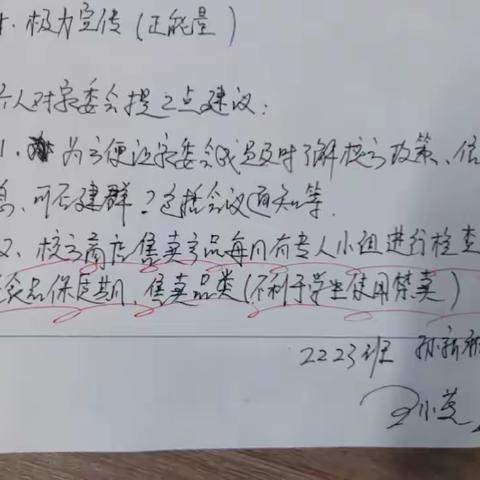 极力宣传（正能量）
个人对家委会提2点建议：
1. 为方便让家委会成员及时了解校方政策、信
息，可否建群？包括会议通知等.
2、校方商店售卖产品每月有专人小组进行检查
食品保质期、售卖品类（不利于学生使用禁卖）
2223班 孙
王小芝